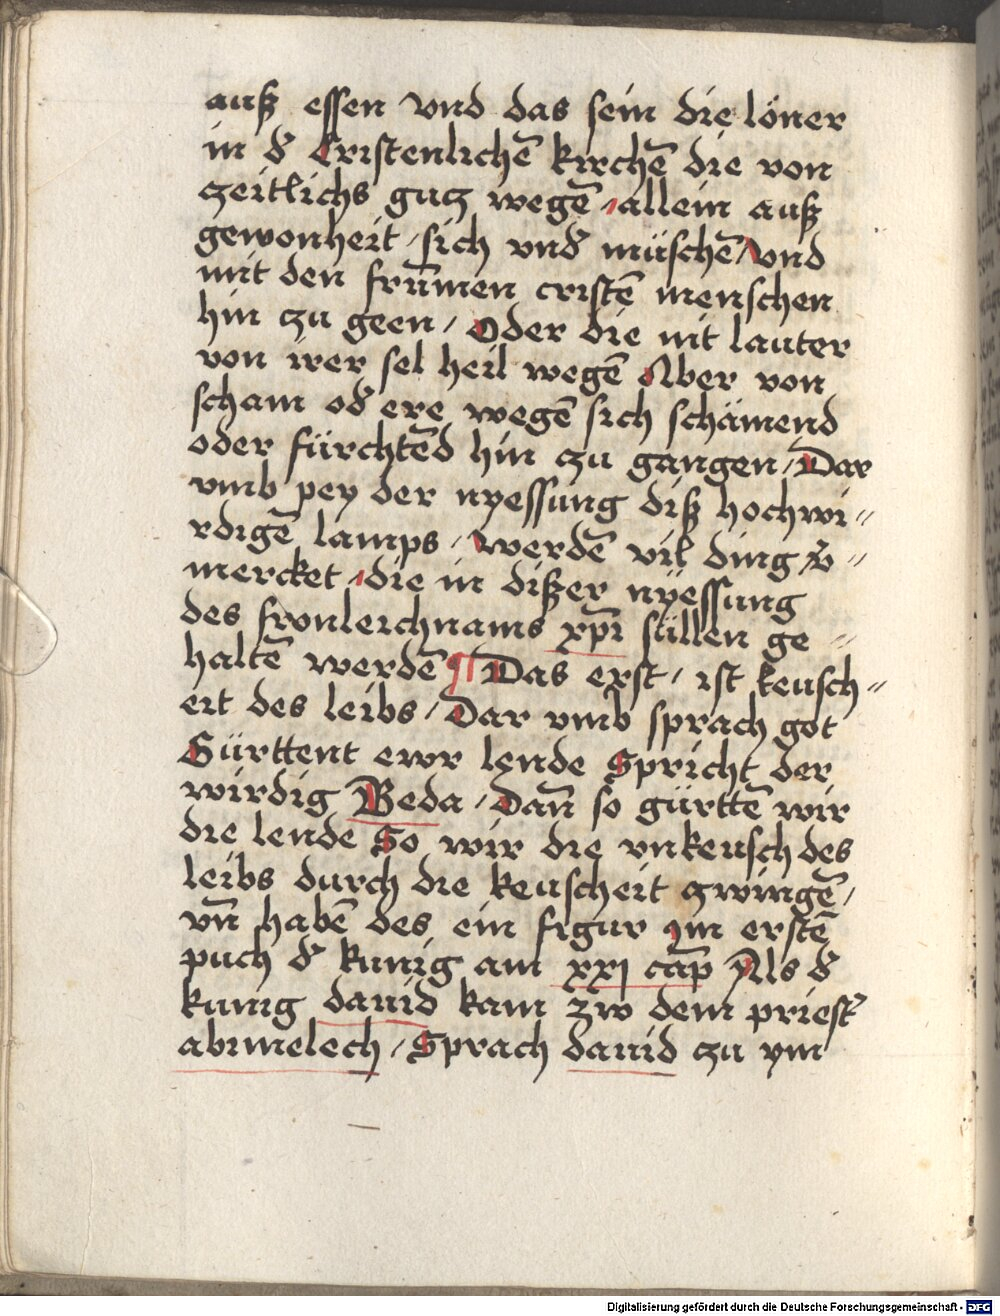 auß essen vnd das sein die löner
in d̕ Cristenlichē kirchē die von
zeitlichs gutz wegē / allein auß
gewonheit / sich vnd̕ müschē / vnd
mit den frūmen cristē menschen
hin zu geen / Oder die nit lauter
von irer sel heil wegē Aber von
scham od̕ ere wegē sich schämend
oder fürchtēd hin zu gangen / Dar
vmb pey der nyessung diß hochwi〃
rdigē lamps / werdē vil ding v̕〃
mercket / die in dißer nÿessung
des fronleichnams xp̄i süllen ge〃
haltē werdē ¶ Das erst / ist keusch〃
eit des leibs / Dar vmb sprach got
Gürttent ewr lende Spricht der
wirdig Beda / Dañ so gürttē wir
die lende So wir die vnkeusch des
leibs durch die keuscheit zwingē /
vñ habē des ein figur ym erstē
puch d̕ kunig am xxj cap̄ Als d̕
kunig dauid kam zw dem priest̕
abimelech / Sprach dauid zu ym
Digitalisierung gefördert durch die Deutsche Forschungsgemeinschaft - DFG